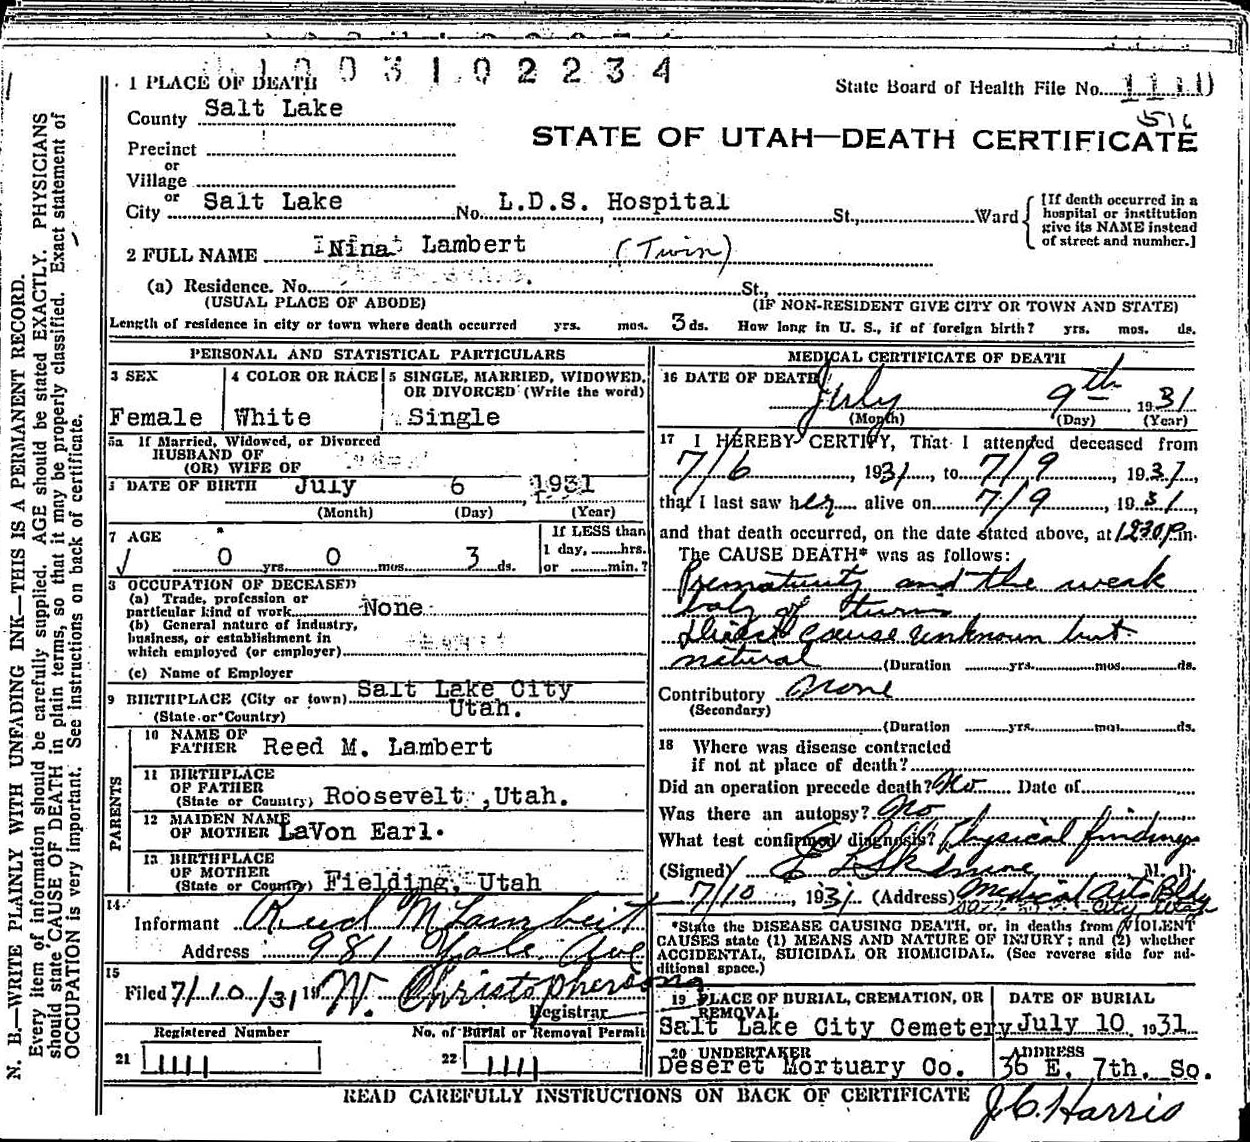 1003102234
1 PLACE OF DEATH
State Board of Health File No. 1110
516
County Salt Lake
STATE OF UTAH—DEATH CERTIFICATE
Precinct
or
Village
or
City Salt Lake No. L.D.S. Hospital St., Ward
[If death occurred in a hospital or institution give its NAME instead of street and number.]
2 FULL NAME Nina Lambert (Twin)
(a) Residence. No. St.,
(USUAL PLACE OF ABODE) (IF NON-RESIDENT GIVE CITY OR TOWN AND STATE)
Length of residence in city or town where death occurred yrs. mos. 3 ds. How long in U. S., if of foreign birth? yrs. mos. ds.
PERSONAL AND STATISTICAL PARTICULARS
3 SEX 4 COLOR OR RACE 5 SINGLE, MARRIED, WIDOWED,
OR DIVORCED (Write the word)
Female White Single
5a If Married, Widowed, or Divorced
HUSBAND OF
(OR) WIFE OF
DATE OF BIRTH July 6 1931
(Month) (Day) (Year)
7 AGE If LESS than
1 day, hrs.
0 yrs. 0 mos. 3 ds. or min.?
8 OCCUPATION OF DECEASED
(a) Trade, profession or
particular kind of work None
(b) General nature of industry,
business, or establishment in
which employed (or employer)
(c) Name of Employer
9 BIRTHPLACE (City or town) Salt Lake City
(State or Country) Utah.
PARENTS
10 NAME OF
FATHER Reed M. Lambert
11 BIRTHPLACE
OF FATHER
(State or Country) Roosevelt, Utah.
12 MAIDEN NAME
OF MOTHER LaVon Earl.
13 BIRTHPLACE
OF MOTHER
(State or Country) Fielding, Utah
14
Informant Reed M Lambert
Address 981 Yale Ave
15
Filed 7/10/31 19 W. Christopherson
Registrar
Registered Number No. of Burial or Removal Permit
21 1111 22 1111
MEDICAL CERTIFICATE OF DEATH
16 DATE OF DEATH July 9th 1931
(Month) (Day) (Year)
17 I HEREBY CERTIFY, That I attended deceased from
7/6, 1931, to 7/9 1931,
that I last saw her alive on 7/9, 1931,
and that death occurred, on the date stated above, at 1230 P.m.
The CAUSE DEATH* was as follows:
Prematurity and the weak
baby of twins
Direct cause unknown but
natural (Duration yrs. mos. ds.
Contributory None
(Secondary)
(Duration yrs. mos. ds.
18 Where was disease contracted
if not at place of death?
Did an operation precede death? No Date of
Was there an autopsy? No
What test confirmed diagnosis? Physical findings
(Signed) E L Skidmore M. D.
7/10, 1931 (Address) Medical Arts Bldg
*State the DISEASE CAUSING DEATH, or, in deaths from VIOLENT
CAUSES state (1) MEANS AND NATURE OF INJURY; and (2) whether
ACCIDENTAL, SUICIDAL OR HOMICIDAL. (See reverse side for ad-
ditional space.)
19 PLACE OF BURIAL, CREMATION, OR
REMOVAL DATE OF BURIAL
Salt Lake City Cemetery July 10 1931
20 UNDERTAKER ADDRESS
Deseret Mortuary Co. 36 E. 7th. So.
READ CAREFULLY INSTRUCTIONS ON BACK OF CERTIFICATE
J. C. Harris
N. B.—WRITE PLAINLY WITH UNFADING INK—THIS IS A PERMANENT RECORD.
Every item of information should be carefully supplied. AGE should be stated EXACTLY. PHYSICIANS
should state CAUSE OF DEATH in plain terms, so that it may be properly classified. Exact statement of
OCCUPATION is very important. See instructions on back of certificate.